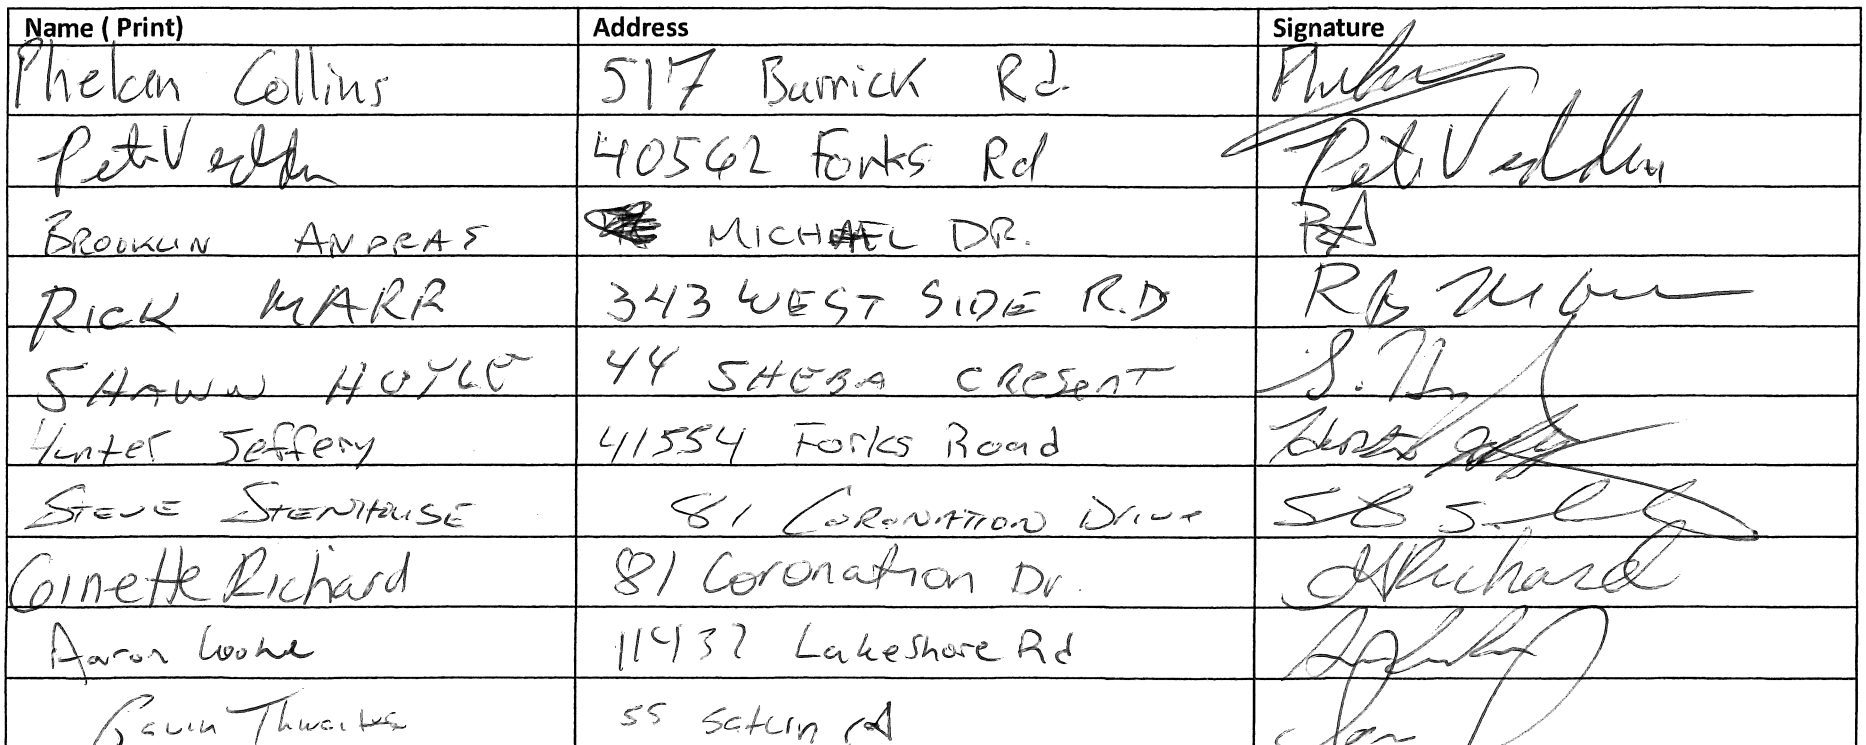 Name ( Print) Address Signature
Phelan Collins 517 Barrick Rd.
Pete Vedder 40562 Forks Rd Pete Vedder
BROOKLIN ANDRAS MICHAEL DR. BA
RICK MARR 343 WEST SIDE RD
SHAWN HOYLE 44 SHEBA CRESENT S. H
Hunter Jeffery 41554 Forks Road
STEVE STENHOUSE 81 CORONATION Drive
Ginette Richard 81 Coronation Dr. GRichard
Aaron Cooke 11437 Lakeshore Rd
Gavin Thwaites 55 Saturn rd